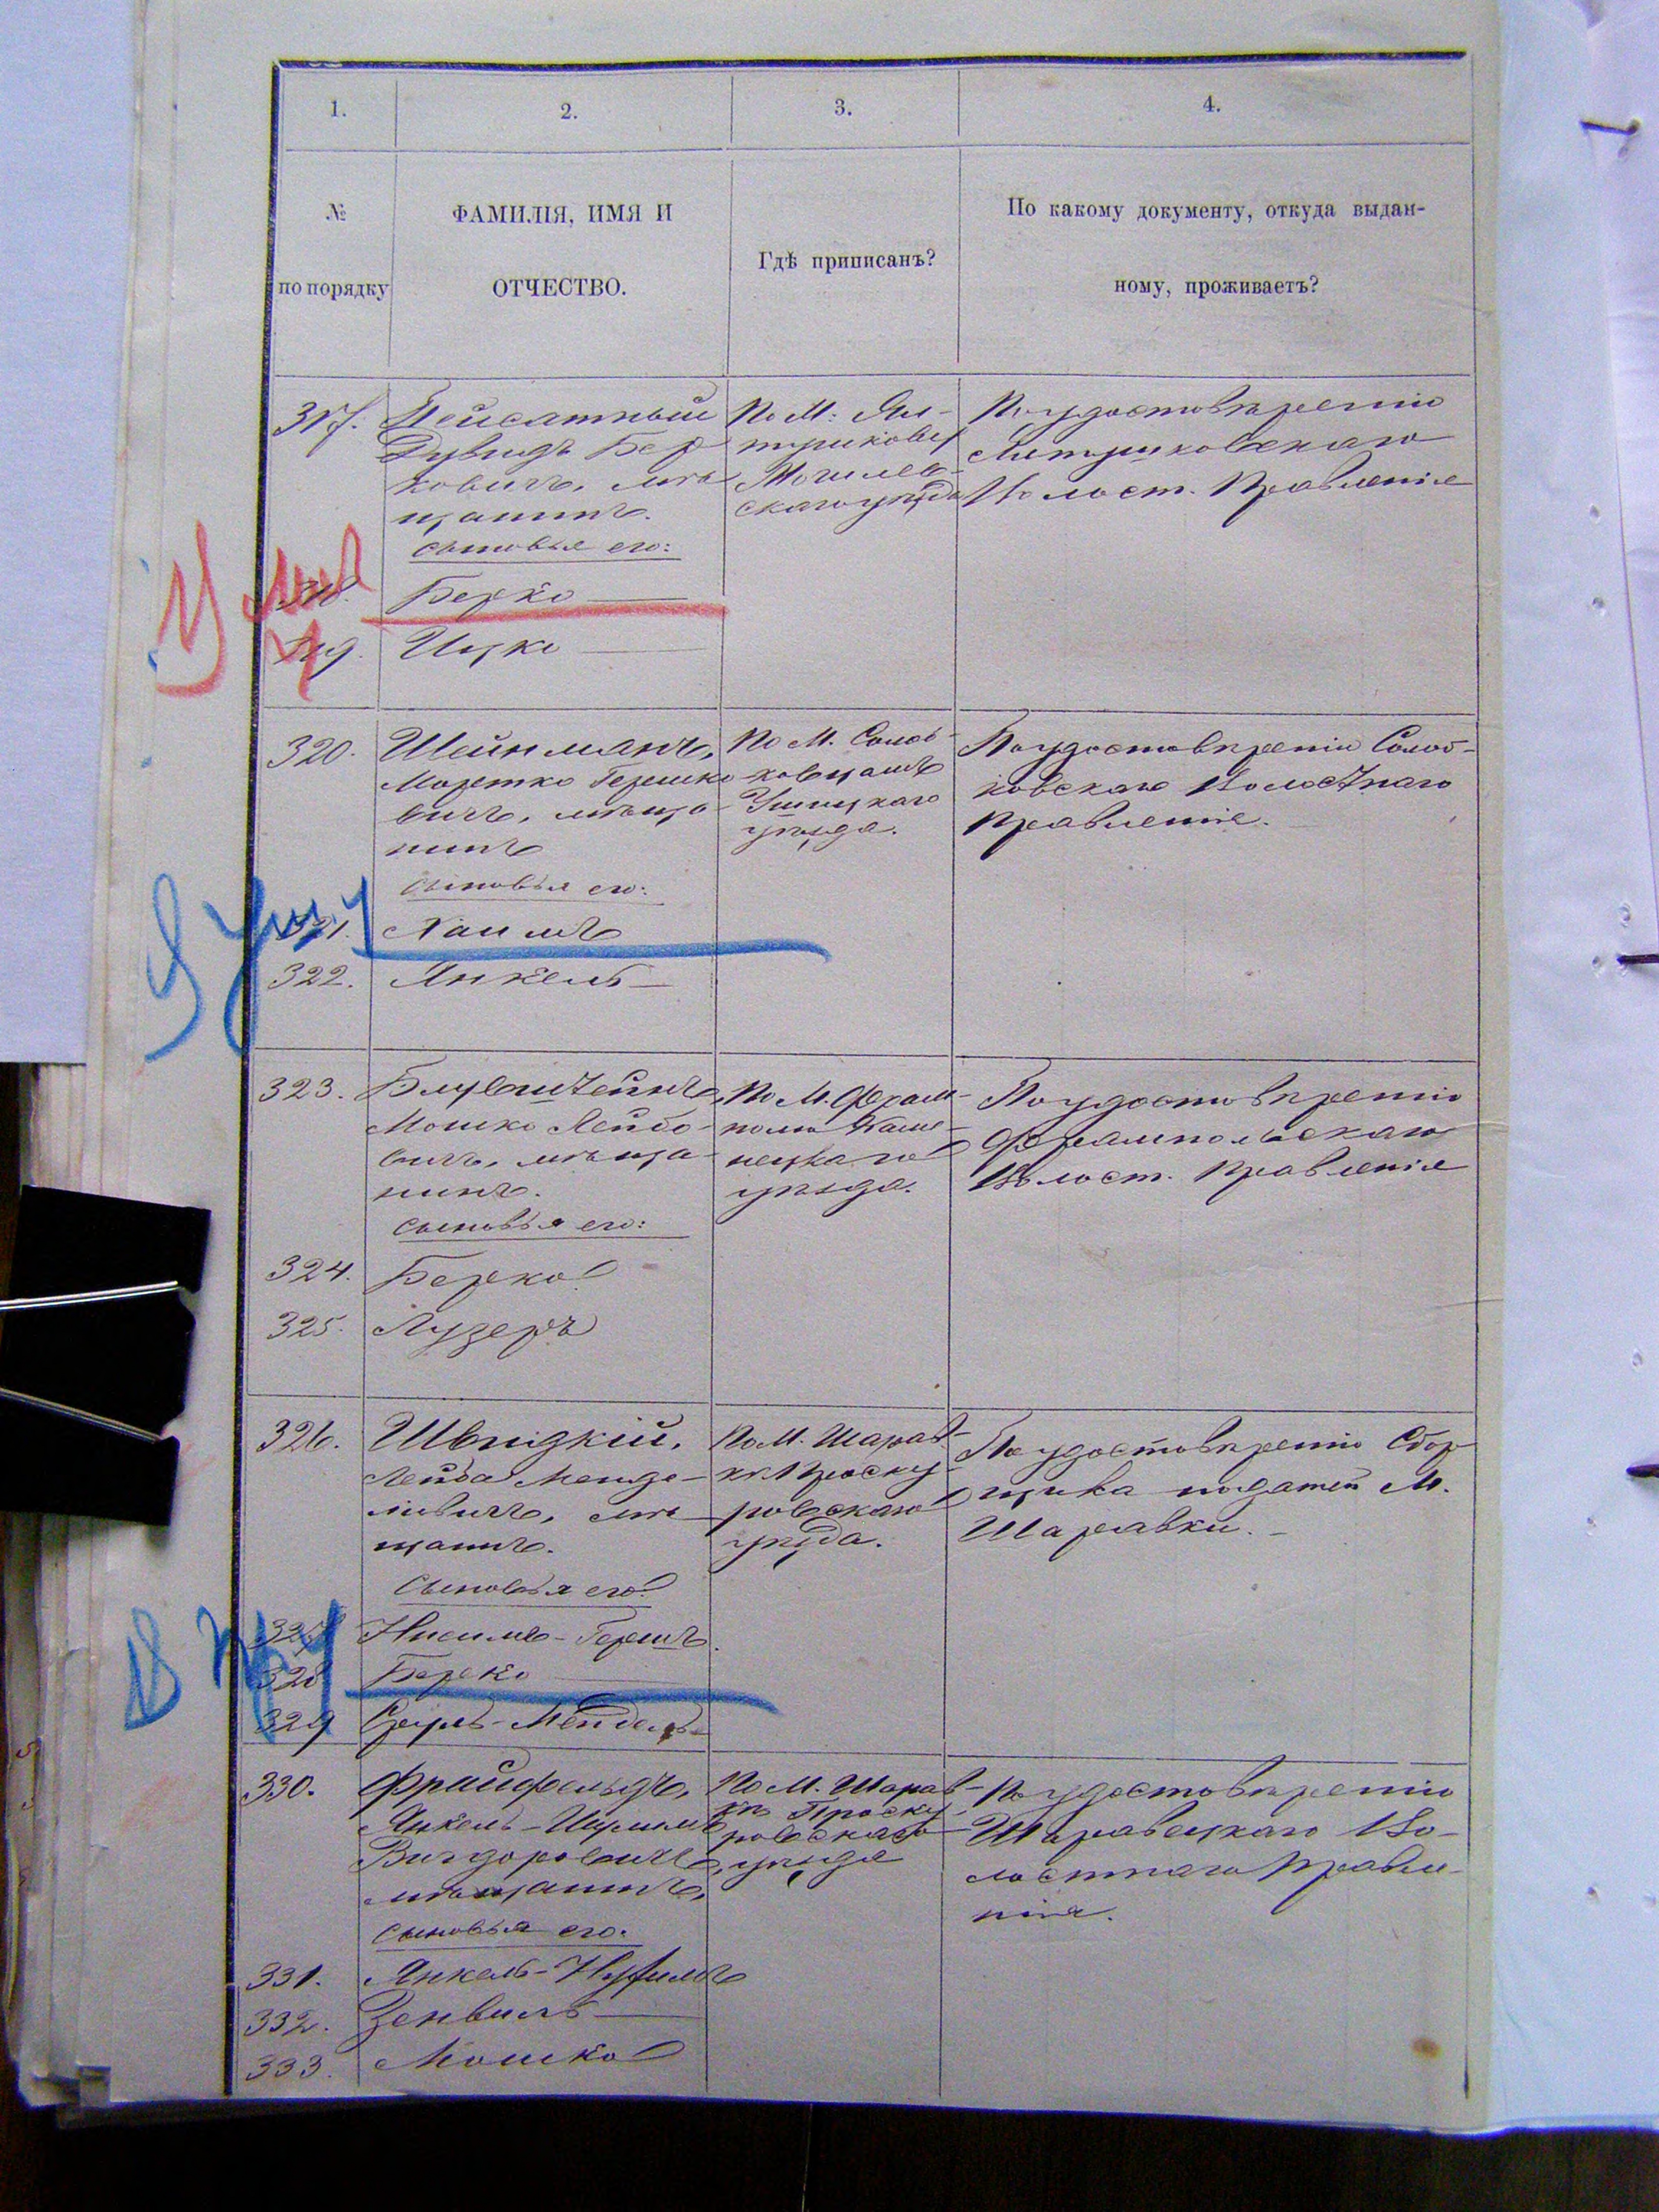 1.
2.
3.
4.
№
по порядку
ФАМИЛІЯ, ИМЯ И
ОТЧЕСТВО.
Гдѣ приписанъ?
По какому документу, откуда выдан-
ному, проживаетъ?
317.
Пейсатный
Дувидъ Бер
ковичъ, мѣ
щанинъ.
сыновья его:
По М. Ял-
тушкову
Могилев-
скаго уѣзда
По удостовѣренію
Ялтушковскаго
Волост. Правленія
318.
Берко
319.
Ицко
320.
Шейнманъ,
Мортко Гершко
вичъ, мѣща-
нинъ
сыновья его:
По М. Солоб-
ковцамъ
Ушицкаго
уѣзда.
По удостовѣренію Солоб-
ковскаго Волостнаго
Правленія.
321.
Хаимъ
322.
Янкель
323.
Блувштейнъ,
Мошко Лейбо-
вичъ, мѣща-
нинъ.
сыновья его:
По М. Фрам-
полю Каме-
нецкаго
уѣзда.
По удостовѣренію
Фрампольскаго
Волост. Правленія
324.
Берко
325.
Лузеръ
326.
Швидкій,
Лейба Менде-
левичъ, мѣ-
щанинъ.
Сыновья его:
По М. Шарав-
кѣ Проску-
ровскаго
уѣзда.
По удостовѣренію Сбор-
щика податей М.
Шаравки.
327
Нисимъ-Гершъ.
328
Берко
329
Сруль-Мендель
330.
Фрайфельдъ,
Янкель-
Вигдоровичъ,
мѣщанинъ,
сыновья его:
По М. Шарав-
кѣ Проску-
ровскаго
уѣзда
По удостовѣренію
Шаравецкаго Во-
лостнаго Правле-
нія.
331.
Янкель-Нухимъ
332.
Зенвиль
333.
Мошко